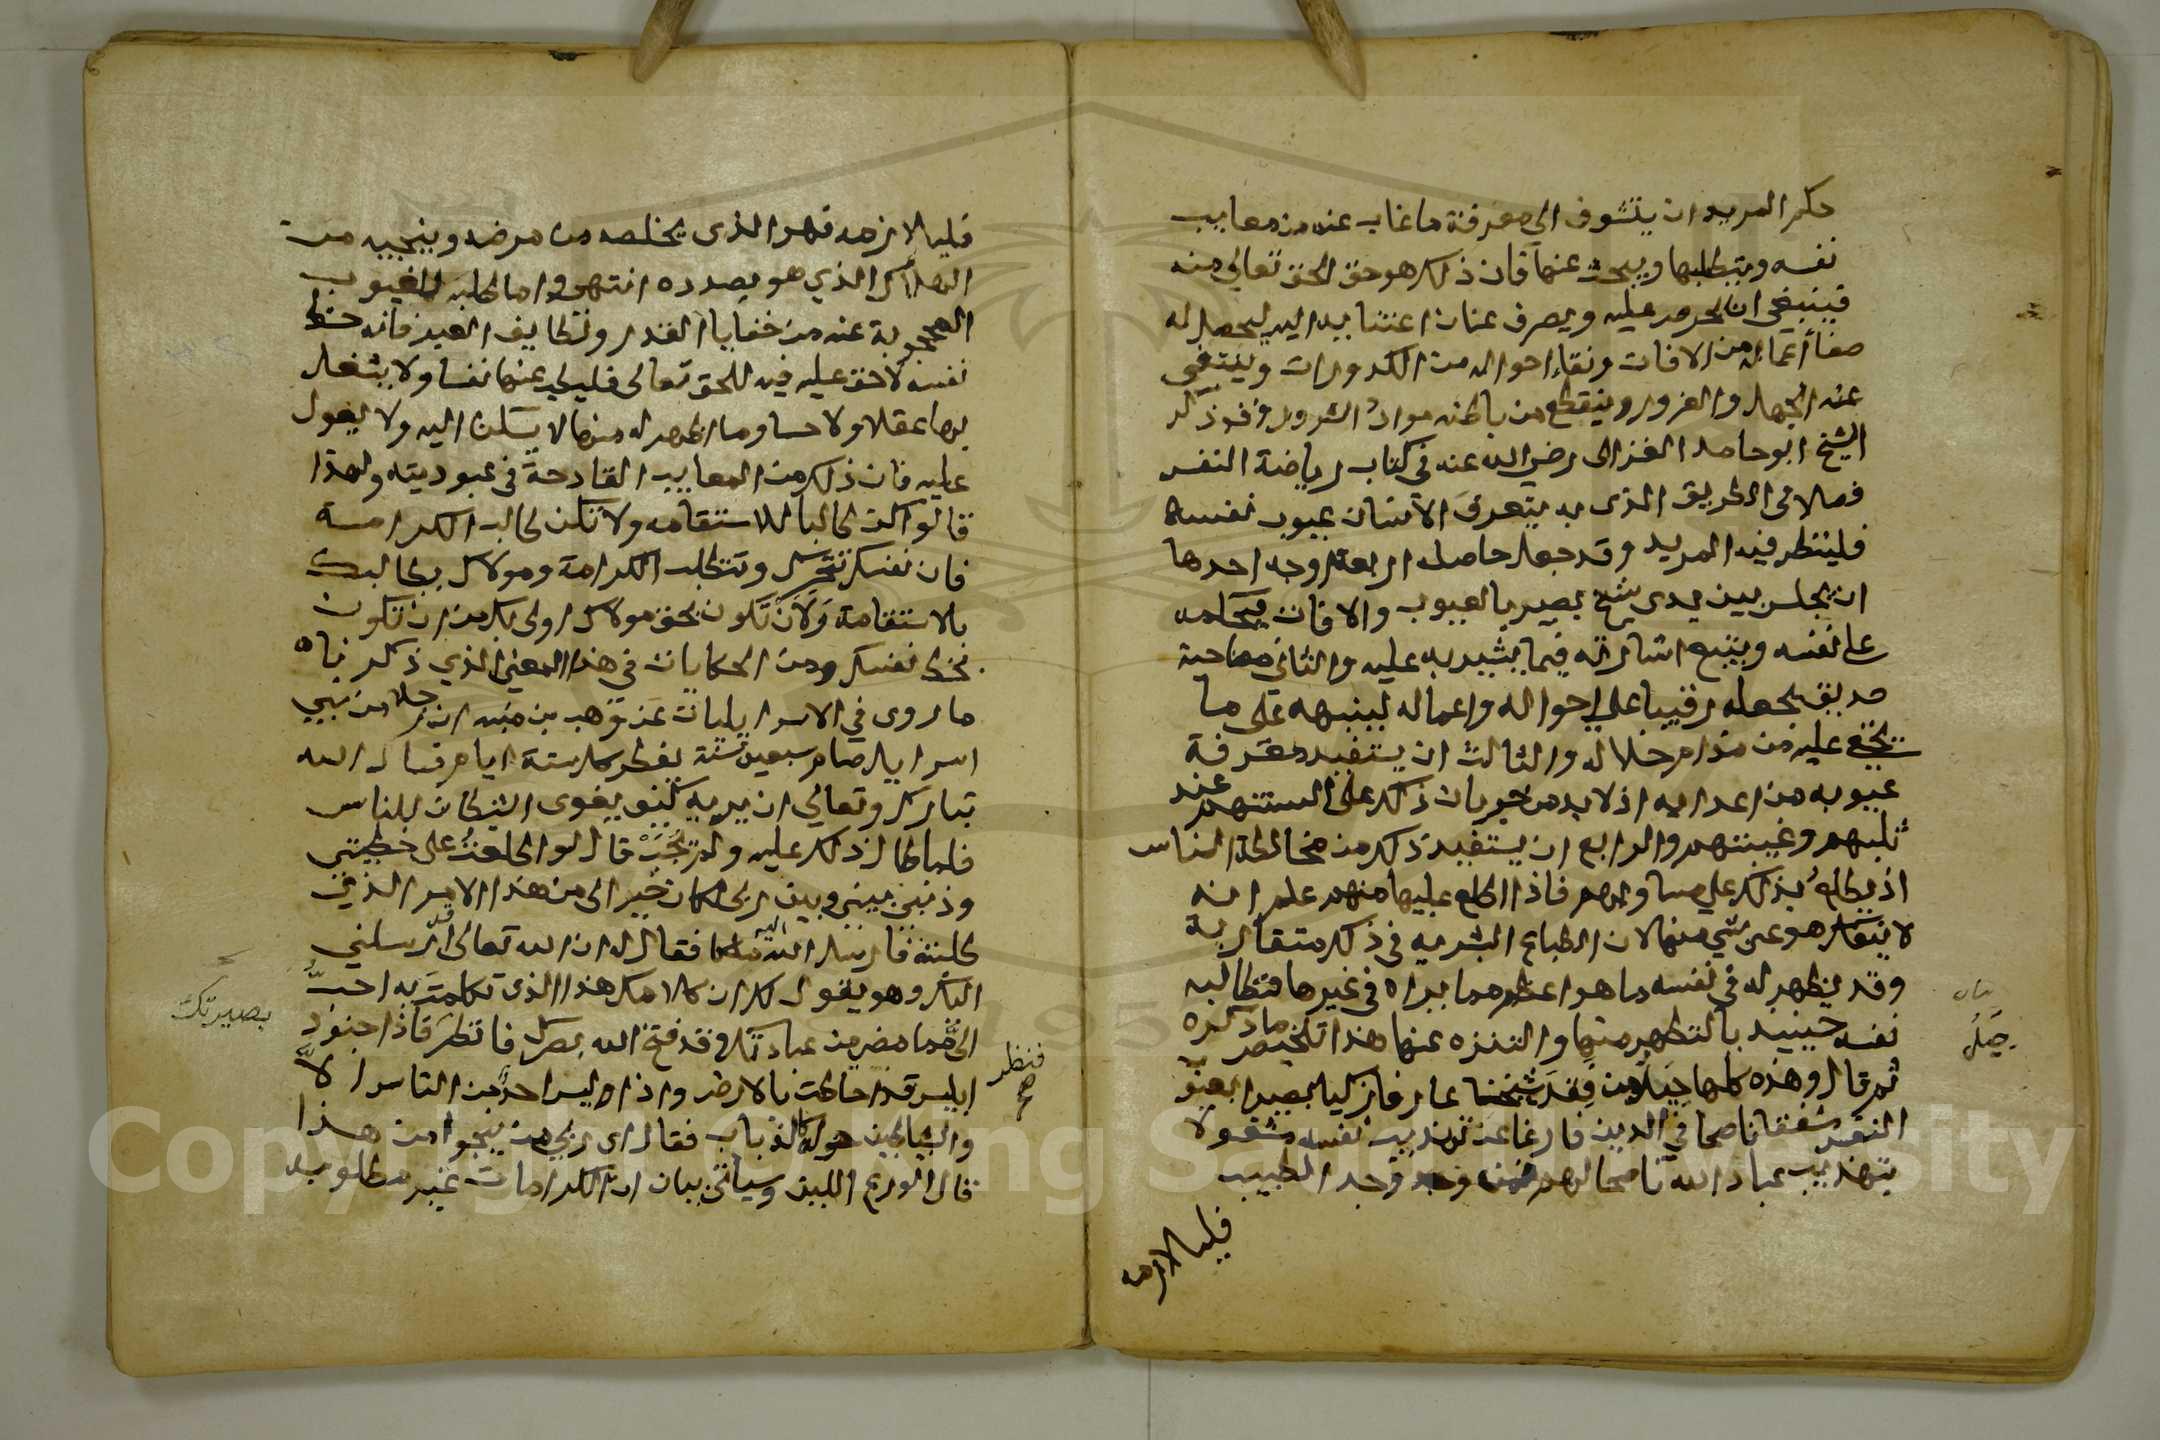 حكم المريد ان يتشوف الى معرفة ما غاب عنه من معايب
نفسه ويتطلبها ويبحث عنها فان ذلك هو حق الحق تعالى منه
فينبغي ان يحرص عليه ويصرف عنان اعتنايه اليه ليحصل له
صفاء اعماله من الافات ونقاء احواله من الكدورات وينتفى
عنه الجهل والغرور وينقطع من باطنه مواد الشرور وقد ذكر
الشيخ ابو حامد الغزالى رضى الله عنه فى كتاب رياضة النفس
فصلا فى الطريق الذى به يتعرف الانسان عيوب نفسه
فلينظر فيه المريد وقد جعل حاصله اربعة اوجه احدها
ان يجلس بين يدى شيخ بصير بالعيوب والافات فيحكمه
على نفسه ويتبع اشارته فيما يشير به عليه والثانى مصاحبة
صديق يجعله رقيبا على احواله واعماله لينبهه على ما
يخفى عليه من مذام خلاله والثالث ان يستفيد معرفة
عيوبه من اعدايه اذ لا بد من جريان ذلك على السنتهم عند
ثلبهم وغيبتهم والرابع ان يستفيد ذلك من مخالطة الناس
اذ يطلع بذلك على مساويهم فاذا اطلع عليها منهم علم انه
لا ينفك هو عن شي منها لان الطباع البشريه فى ذلك متقاربة
وقد يظهر له فى نفسه ما هو اعظم مما يراه فى غيرها فتطالبه
نفسه حينيذ بالتطهر منها والتنزه عنها هذا تلخيص ما ذكره
ثم قال وهذه كلها حيل من فقد شيخا عارفا زكيا بصيرا بعيوب
النفس مشفقا ناصحا فى الدين فارغا عن تهذيب نفسه مشغولا
بتهذيب عباد الله ناصحا لهم فمن وجد وجد الطبيب
فليلازمه
حيل
فليلازمه فهو الذى يخلصه من مرضه وينجيه من
الهلاك الذي هو بصدده انتهى واما طلبه للغيوب
المحجوبة عنه من خفايا القدر ولطايف العبر فانه حظ
نفسه لا حق عليه فيه للحق تعالى فليطب عنها نفسا ولا يشغل
بها عقلا ولا حسا وما اظهر له منها لا يسكن اليه ولا يعول
عليه فان ذلك من المعايب القادحة فى عبوديته ولهذا
قالوا كن طالبا للاستقامه ولا تكن طالب الكرامة
فان نفسك تتحرك وتطلب الكرامة ومولاك يطالبك
بالاستقامة ولان تكون بحق مولاك اولى بك من ان تكون
بحظ نفسك ومن الحكايات فى هذا المعنى الذي ذكرناه
ما روى في الاسرايليات عن وهب بن منبه ان رجلا من بني
اسرايل صام سبعين سنة يفطر كل ستة ايام فسال الله
تبارك وتعالى ان يريه كيف يغوى الشيطان للناس
فلما طال ذلك عليه ولم يجب قال لو اطلعت على خطيتي
وذنبى بينى وبين ربى لكان خير الى من هذا الامر الذي
طلبته فارسل الله اليه ملكا فقال له ان الله تعالى قد ارسلني
اليك وهو يقول لك ان كلامك هذا الذى تكلمت به احب
الى مما مضى من عبادتك وقد فتح الله بصرك فانظر فاذا جنود
ابليس قد احاطت بالارض واذا ليس احد من الناس الا
والشياطين حوله كالذباب فقال اى ربى من ينجوا من هذا
قال الورع اللين وسياتى بيان ان الكرامات غير مطلوبه
بصيرتك
فنظر
صح